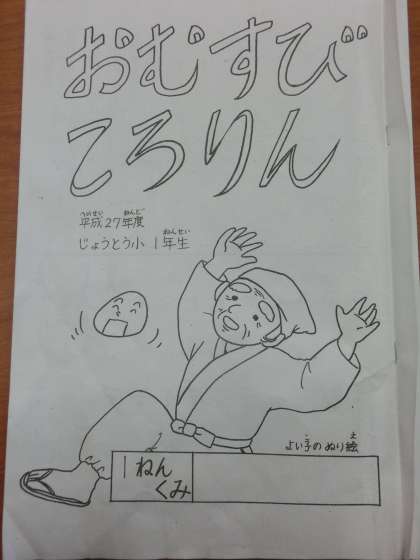 おむすび
ころりん
へいせい ねんど
平成27年度
ねんせい
じょうとう小 1年生
こ え
よい子のぬり絵
1ねん
くみ